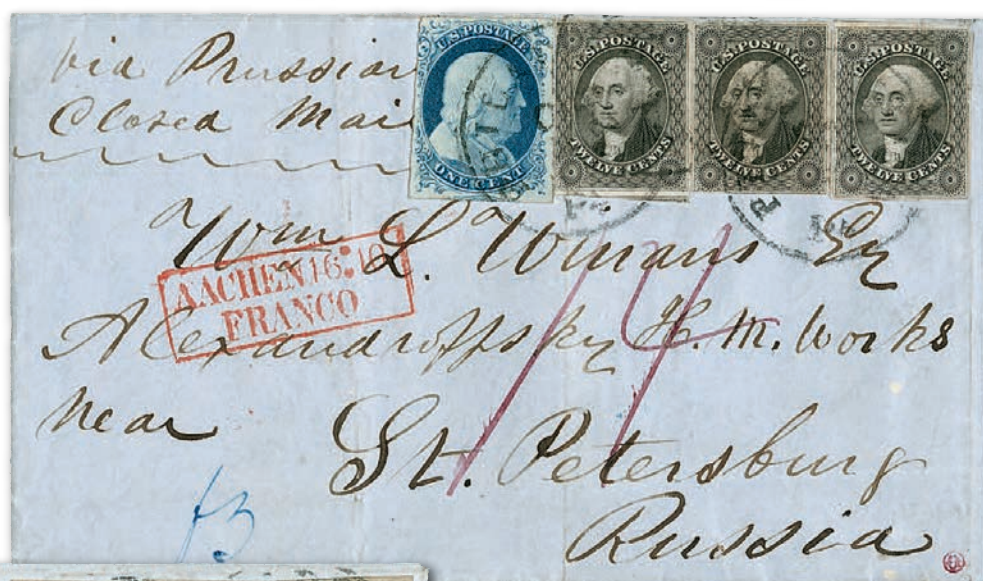 via Prussian
Closed Mail
U.S. POSTAGE
ONE CENT
U.S. POSTAGE
TWELVE CENTS
U.S. POSTAGE
TWELVE CENTS
U.S. POSTAGE
TWELVE CENTS
Wm L. Winans Eq
AACHEN 16 10
FRANCO
Alexandroffsky H. M. Works
near
St. Petersburg
Russia